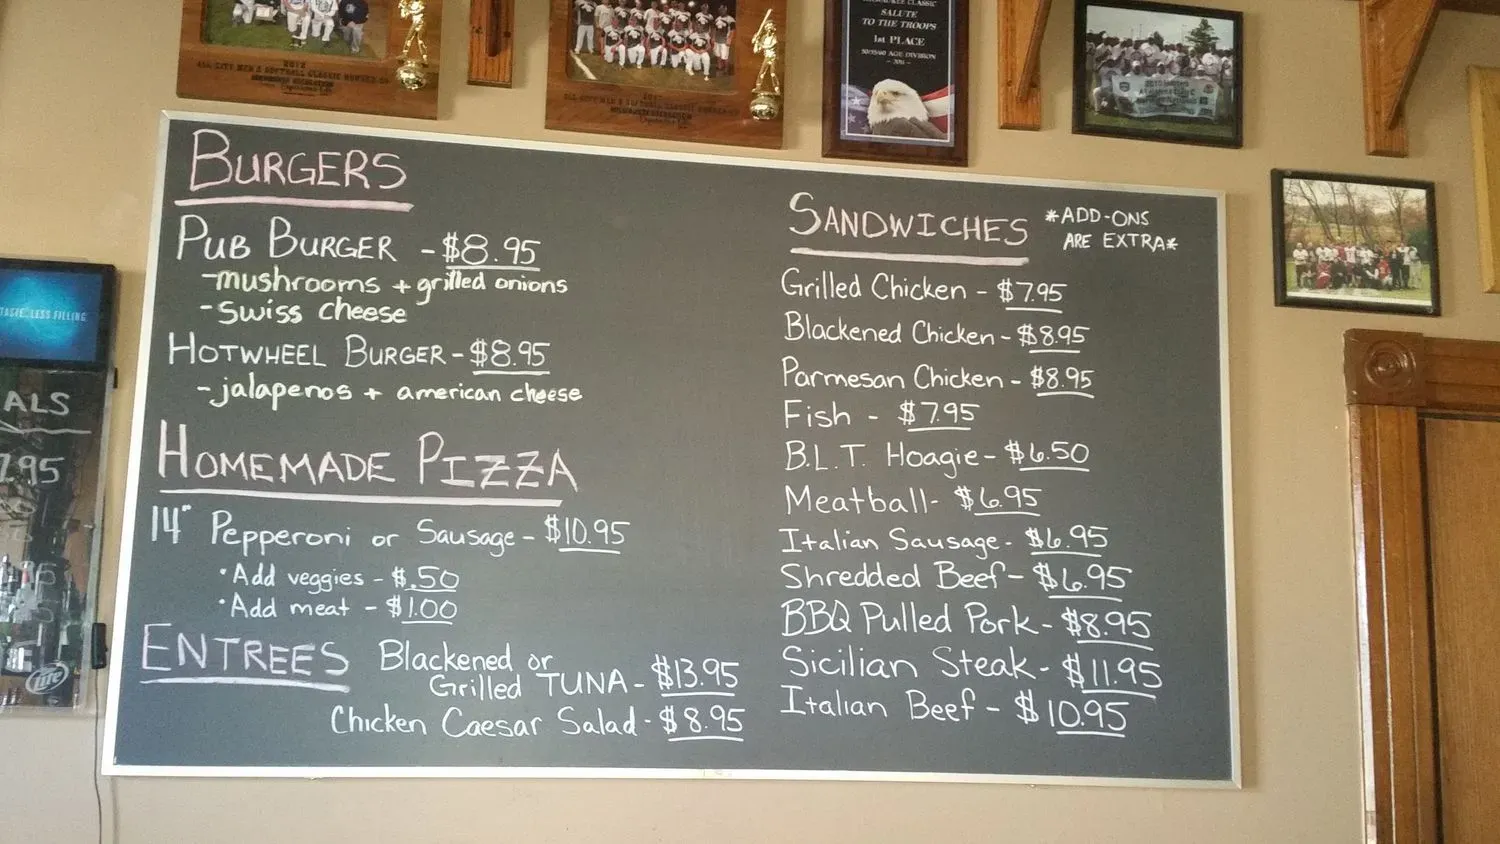 2012
ALL CITY MEN'S SOFTBALL CLASSIC
SALUTE
TO THE TROOPS
1st PLACE
50/55/60 AGE DIVISION
BURGERS
PUB BURGER - $8.95
- mushrooms + grilled onions
- swiss cheese
HOTWHEEL BURGER - $8.95
- jalapenos + american cheese
HOMEMADE PIZZA
14" Pepperoni or Sausage - $10.95
· Add veggies - $.50
· Add meat - $1.00
ENTREES
Blackened or
Grilled TUNA - $13.95
Chicken Caesar Salad - $8.95
SANDWICHES
*ADD-ONS
ARE EXTRA*
Grilled Chicken - $7.95
Blackened Chicken - $8.95
Parmesan Chicken - $8.95
Fish - $7.95
B.L.T. Hoagie - $6.50
Meatball - $6.95
Italian Sausage - $6.95
Shredded Beef - $6.95
BBQ Pulled Pork - $8.95
Sicilian Steak - $11.95
Italian Beef - $10.95
LESS FILLING
ALS
7.95
Lite